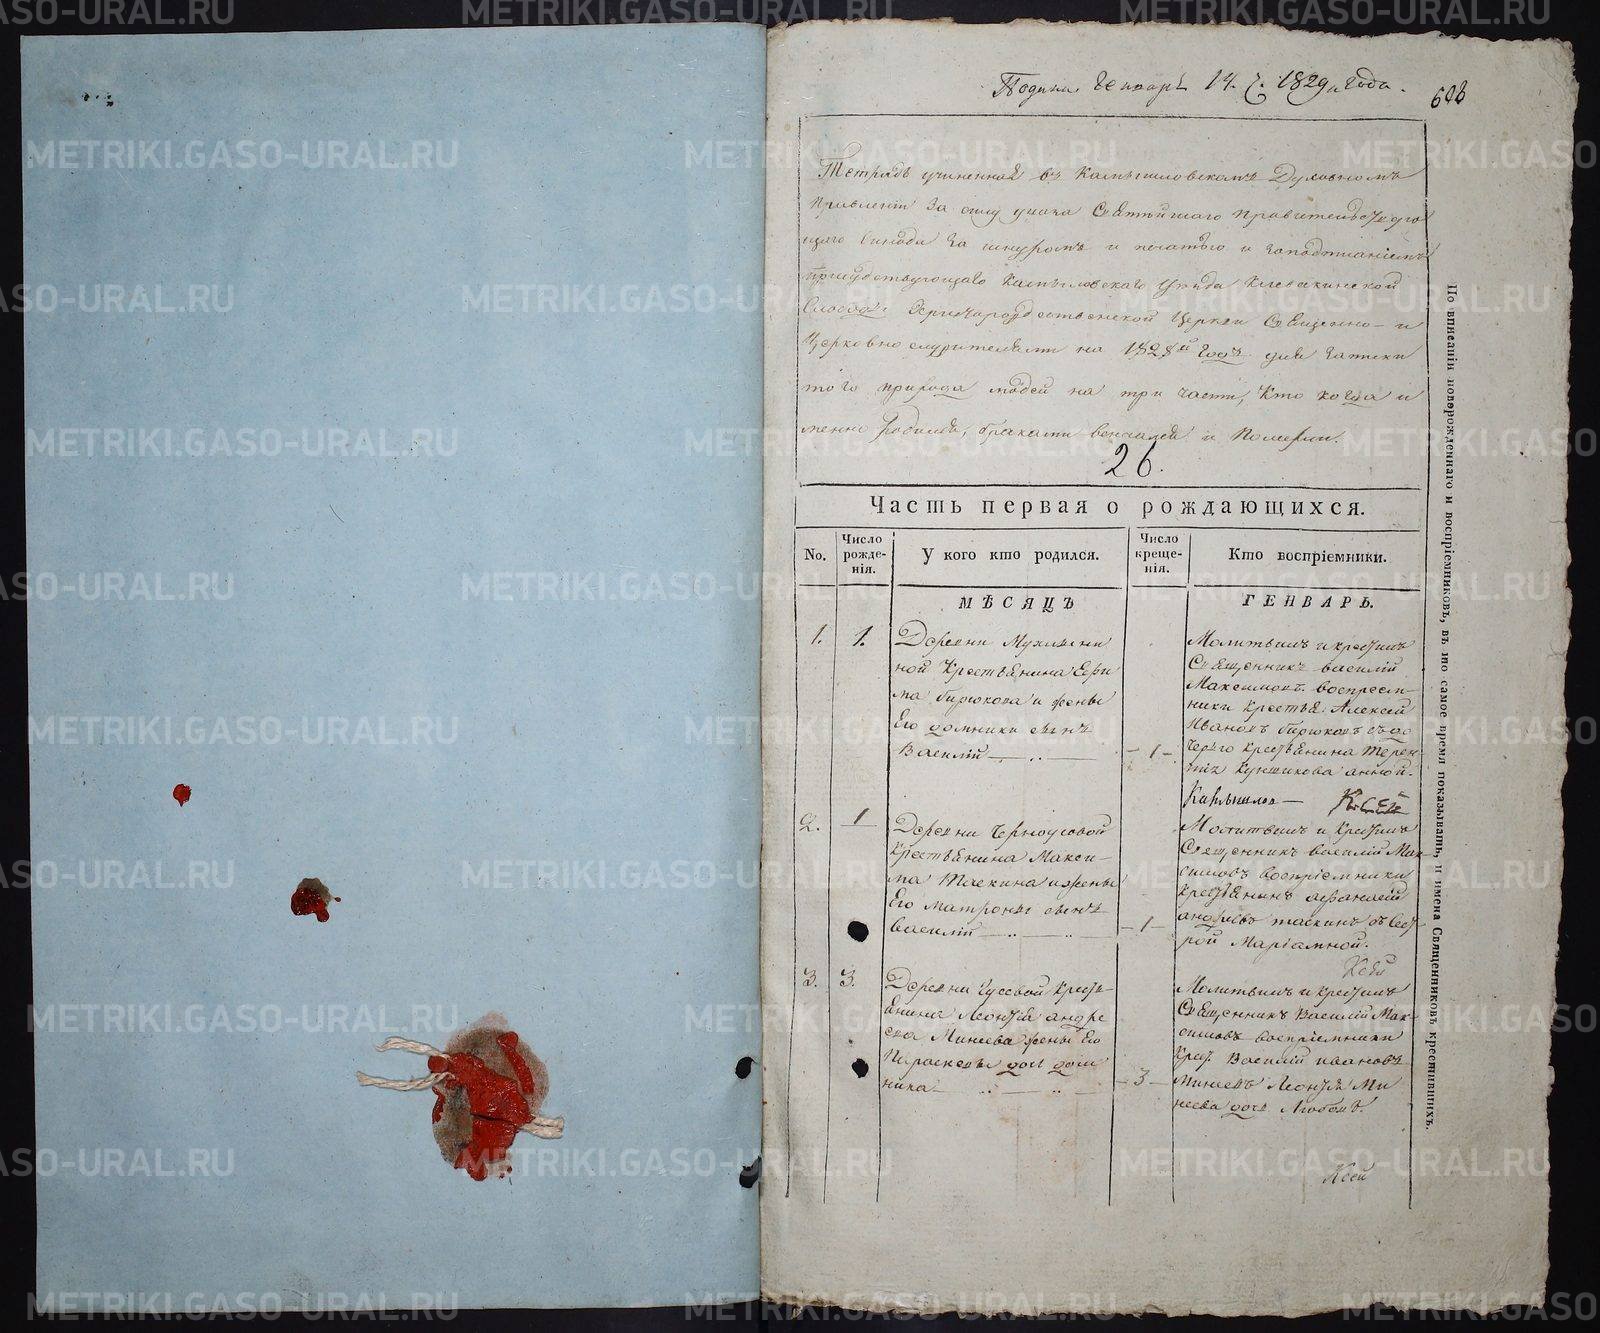 Подана Генваря 14. ч. 1829 года.
608
Тетрадь учиненная въ Камышловскомъ Духовномъ
Правленіи за силу указа Святѣйшаго Правительствую
щаго Синода за шнуромъ и печатью и заподписаніемъ
Присудствующаго Камышловскаго уѣзда Клевакинской
Слободы Христорождественской Церкви Священно- и
Церковнослужителями на 1828й годъ для записки
того прихода людей на три части, кто когда и
менно родился, браками венчался и Померли.
26.
Часть первая о рождающихся.
No.
Число рожде-нія.
У кого кто родился.
Число креще-нія.
Кто воспріемники.
МѢСЯЦЪ
ГЕНВАРЬ.
1.
1.
Деревни
ной Крестьянина Ефи
ма Бирюкова и жены
Его домники сынъ
Василій
- 1 -
Молитвилъ и крестилъ
Священникъ Василій
Максимовъ. воспреем-
ники крестья. Алексей
Ивановъ Бирюковъ съ до
черью крестьянина Терен-
тія Кунщикова анной.
2.
1
Деревни Черноусовой
крестьянина Макси-
ма Таскина и жены
Его Матроны сынъ
василій
- 1 -
Молитвилъ и Крестилъ
Священникъ василій Мак
симовъ воспріемники
крестьянинъ афанасій
андреевъ таскинъ съ Сест
рой Маріамной.
3.
3.
Деревни Гусевой Крест-
янина Леонтія андре
ева Минеева жены Его
Параскевы дочь дом
ника
- 3 -
Молитвилъ и крестилъ
Священникъ Василій Мак
симовъ воспріемники
Крест. Василій ивановъ
Минеевъ Леонтія Ми
неева дочь Любовь.
По вписаніи новорожденнаго и воспріемниковъ, въ то самое время показывать, и имена Священниковъ крестившихъ.
METRIKI.GASO-URAL.RU